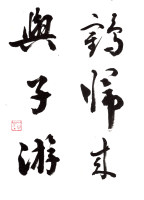 鶴歸來
與子游